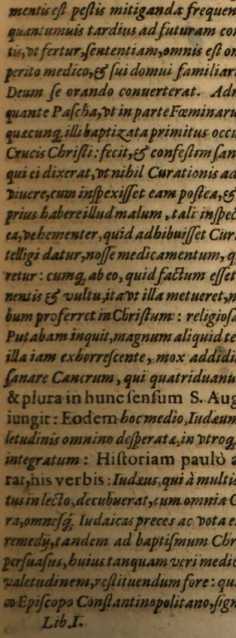 mentis est pestis mitigandæ frequen
quantumuis tardius ad futuram con
tis, vt fertur, sententiam, omnis est on
perito medico, & sui domui familiar
Deum se orando conuerterat. Adn
quante Pascha, vt in parte Fœminaru
quæcunq; illi baptizata primitus occu
Crucis Christi: fecit, & confestim san
qui ei dixerat, vt nihil Curationis ad
viuere, cum inspexisset eam postea, &
prius habere illud malum, tali inspec
ea, vehementer, quid adhibuisset Cur
telligi datur, nosse medicamentum, q
retur: cumq; ab eo, quid factum esset
nentis & vultu, ita vt illa metueret, n
bum proferret in Christum: religiosa
Putabam inquit, magnum aliquid te
illa iam exhorrescente, mox addidi
sanare Cancrum, qui quatriduanu
& plura in hunc sensum S. Aug
iungit: Eodem hoc medio, Iudæum
letudinis omnino desperatæ, in vtroq;
integratum: Historiam paulò a
rat, his verbis: Iudæus, qui à multis
tus in lecto, decubuerat, cum omnia C
ra, omnesq; Iudaicas preces ac vota e
remedij, tandem ad baptismum Chr
persuasus, huius tanquam veri medic
valetudinem, restituendum fore: qua
ab Episcopo Constantinopolitano, sign
Lib. I.